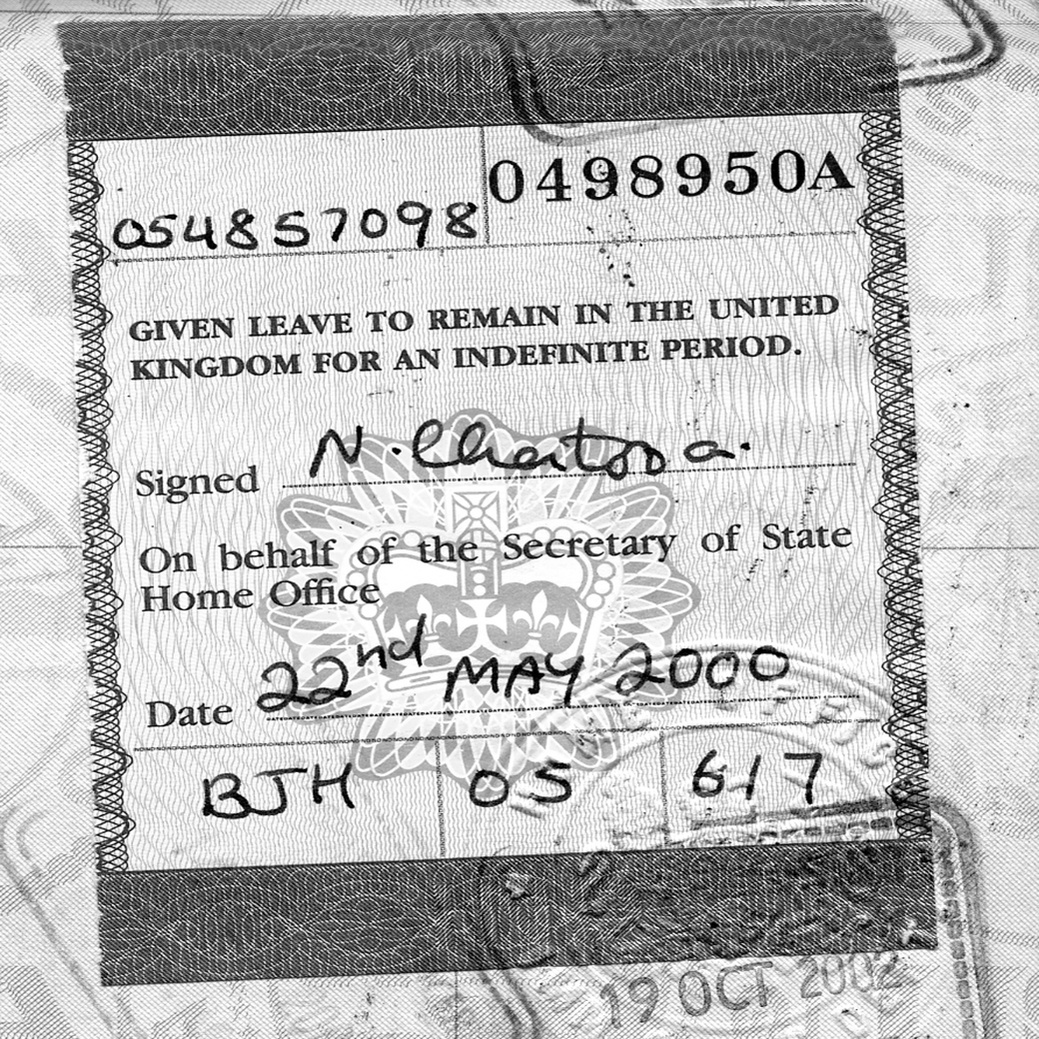 0498950A
054857098
GIVEN LEAVE TO REMAIN IN THE UNITED
KINGDOM FOR AN INDEFINITE PERIOD.
Signed N.
On behalf of the Secretary of State
Home Office
Date 22nd MAY 2000
BJH 05 617
19 OCT 2002